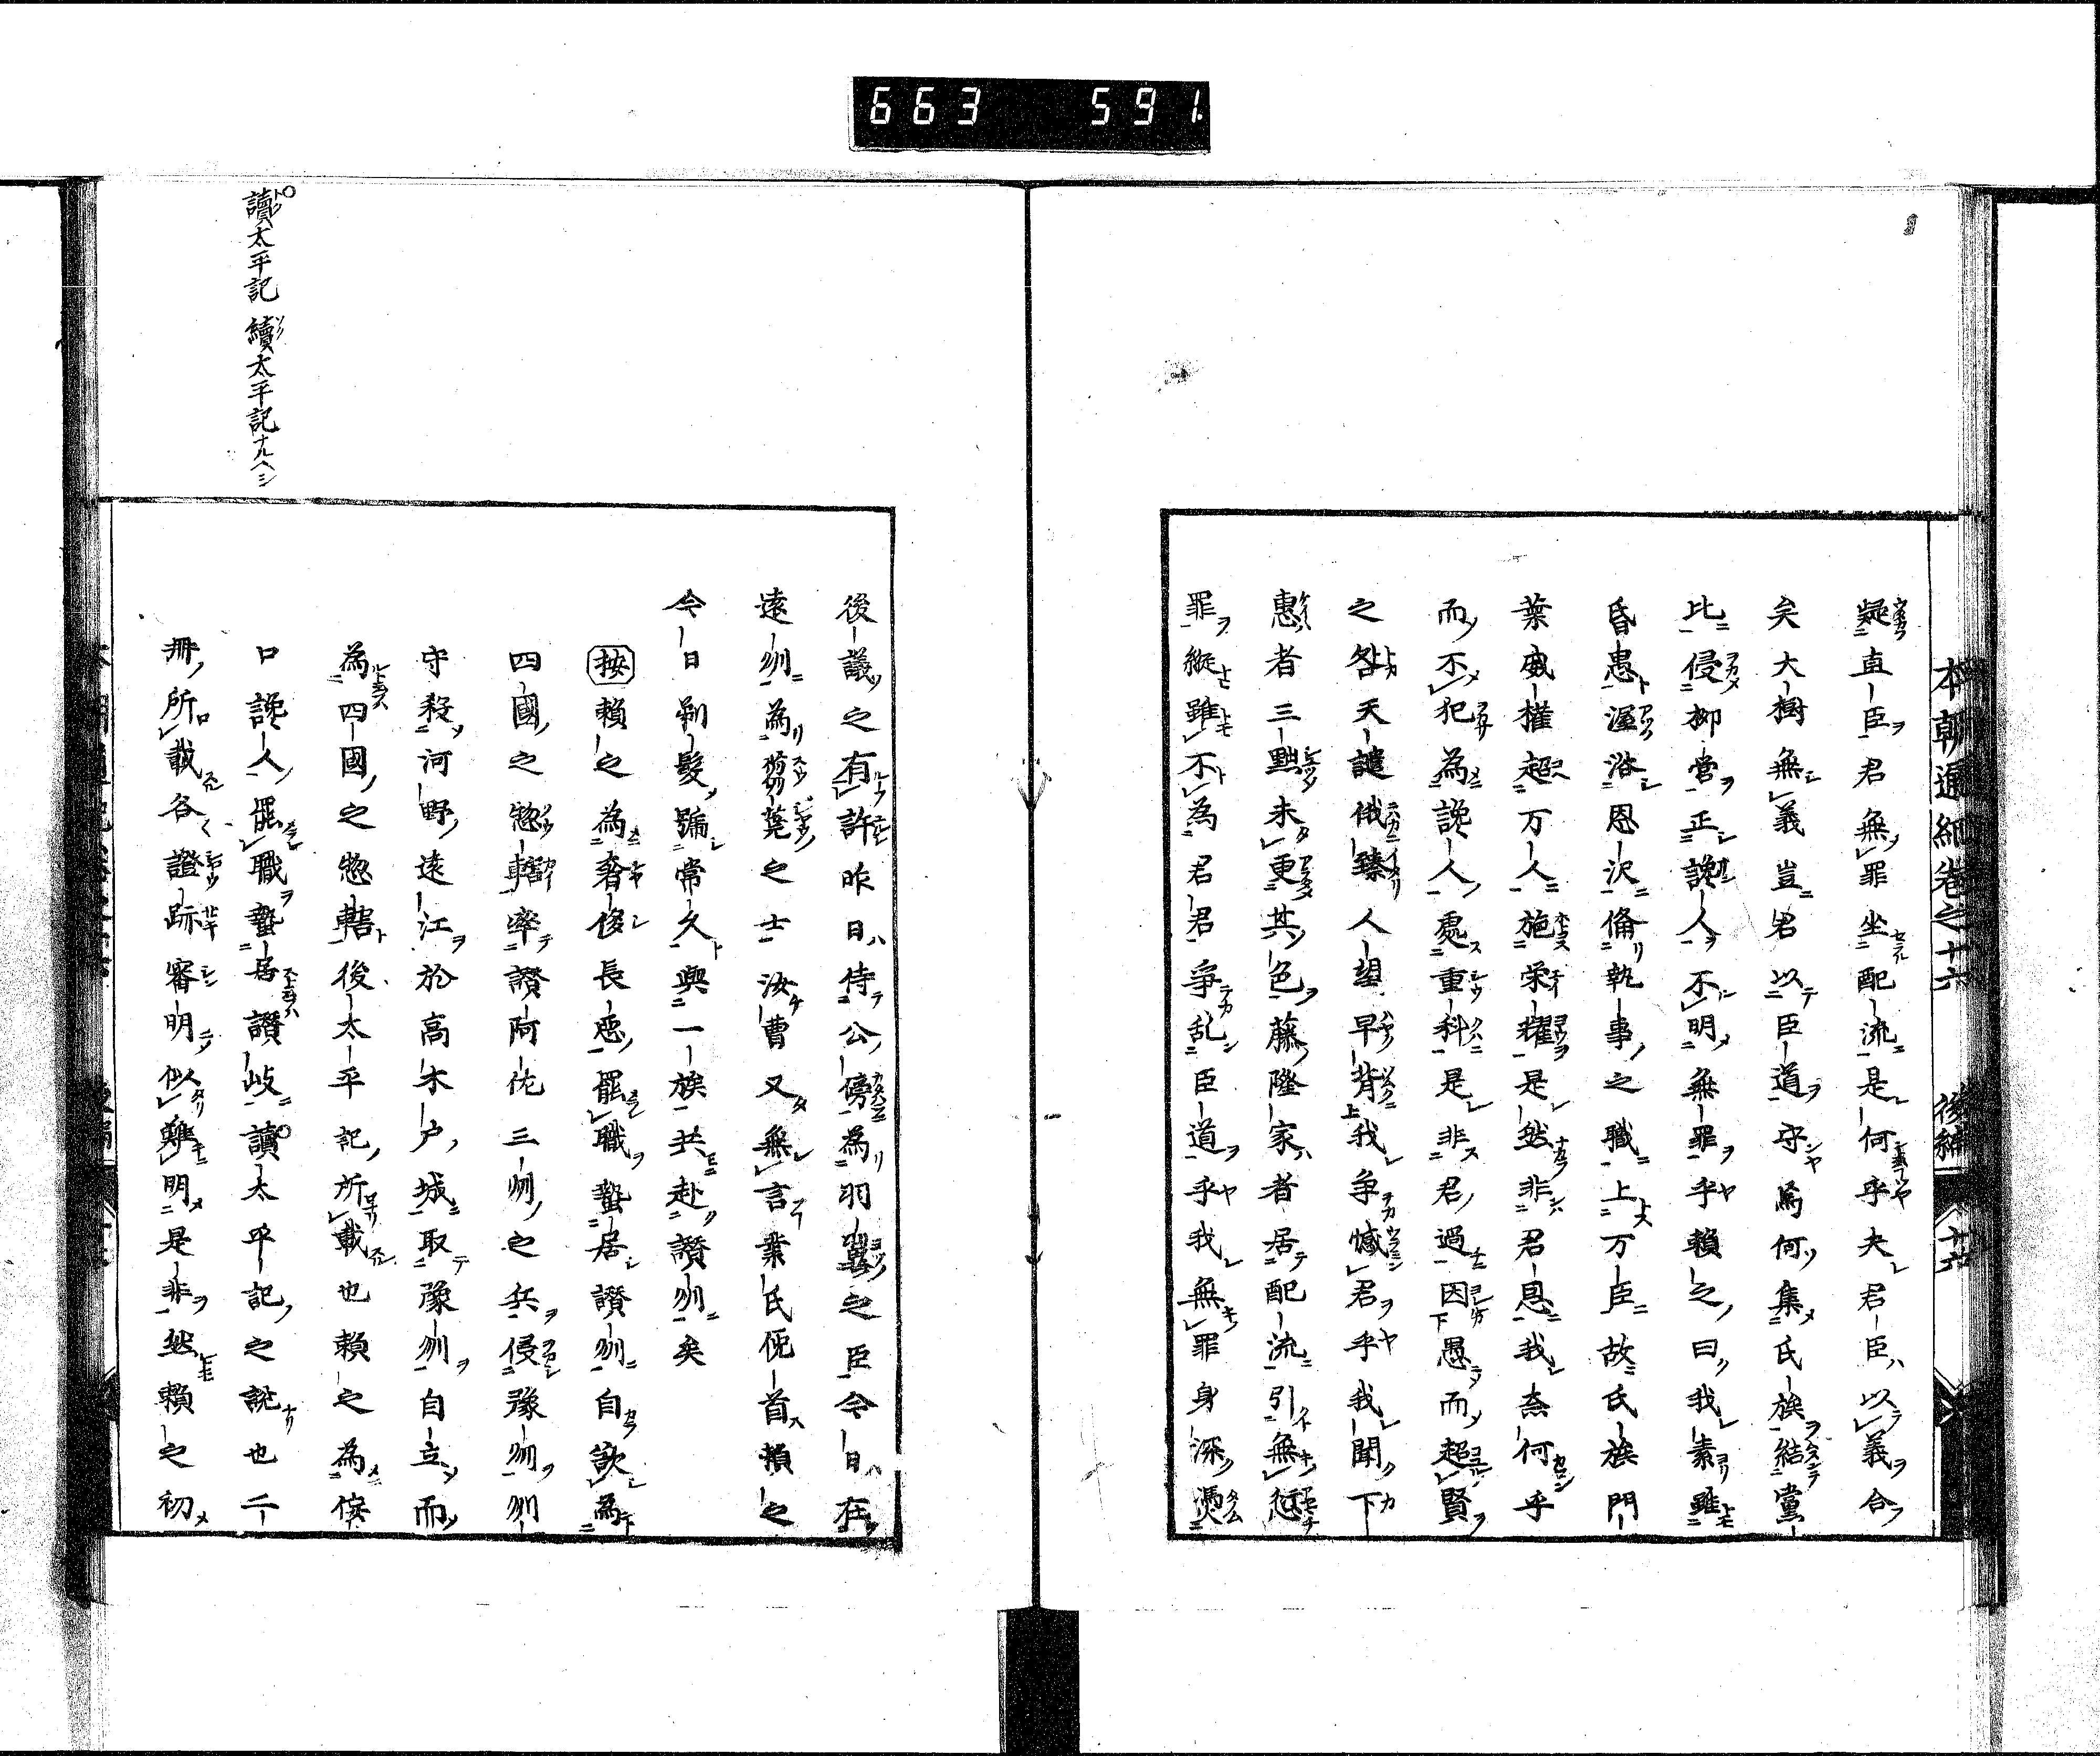 663 591
本朝通紀卷之十六 後編 十六
疑直臣君無罪坐配流是何乎夫君臣以義合
矣大樹無義豈君以臣道守焉何集氏族結黨
比侵柳營正讒人不明無罪乎賴之曰我素雖
昏愚渥浴恩沢備執事之職上万臣故氏族門
葉威權超万人施栄耀是然非君恩我奈何乎
而不犯為讒人處重科是非君過因愚而超賢
之咎天譴俄臻人望早背我争憾君乎我聞下
惠者三黜未更其色藤隆家者居配流引無愆
罪縱雖不為君君争乱臣道乎我無罪身深憑
後議之有許昨日侍公傍為羽翼之臣今日在
遠州為芻蕘之士汝曹又無言業氏俛首頼之
今日剃髮號常久與一族共赴讃州矣
按賴之為奢侈長悪罷職蟄居讃州自欲為
四國之惣轄率讃阿佐三州之兵侵豫州州
守殺河野遠江於高木戸城取豫州自立而
為四國之惣轄後太平記所載也賴之為侫
口讒人罷職蟄居讃岐讀太平記之説也二
冊所載各證跡審明似難明是非然賴之初
讀太平記 續太平記ナルヘシ